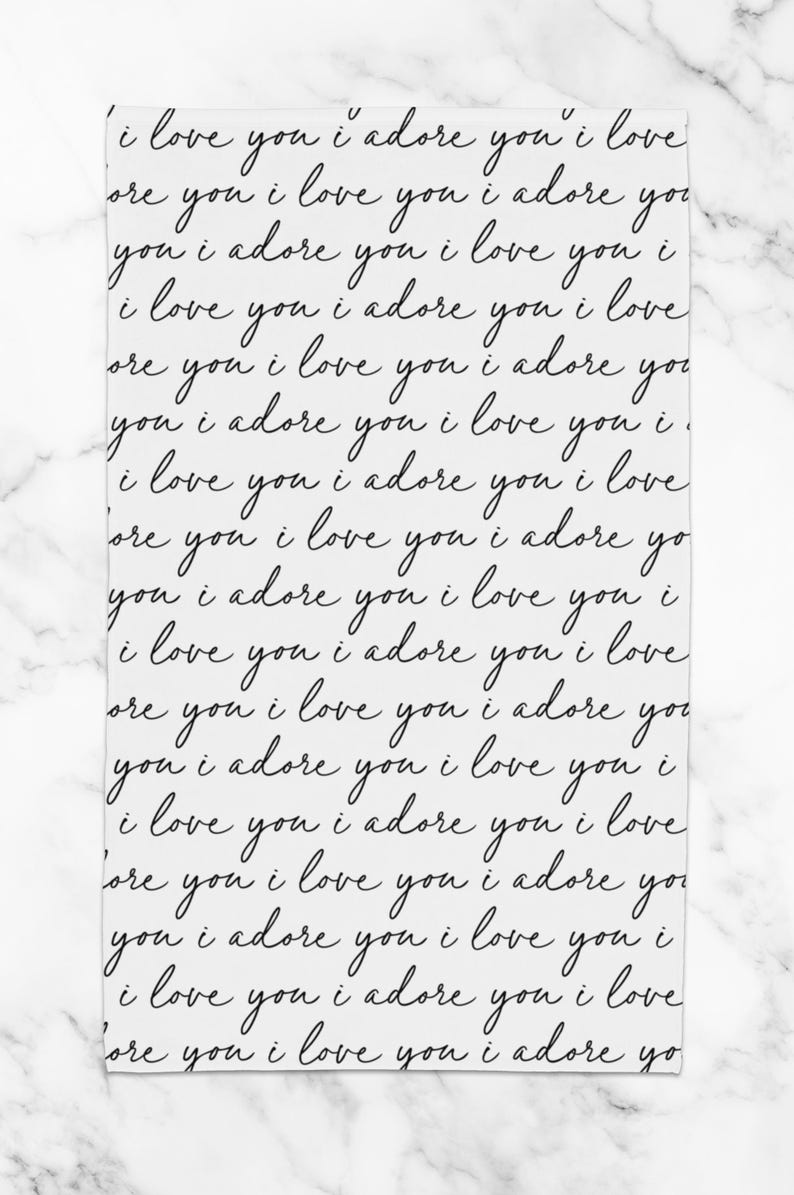 i love you i adore you i love
ore you i love you i adore you
you i adore you i love you i
i love you i adore you i love
ore you i love you i adore you
you i adore you i love you i
i love you i adore you i love
ore you i love you i adore yo
you i adore you i love you i
i love you i adore you i love
ore you i love you i adore you
you i adore you i love you i
i love you i adore you i love
ore you i love you i adore you
you i adore you i love you i
i love you i adore you i love
ore you i love you i adore yo